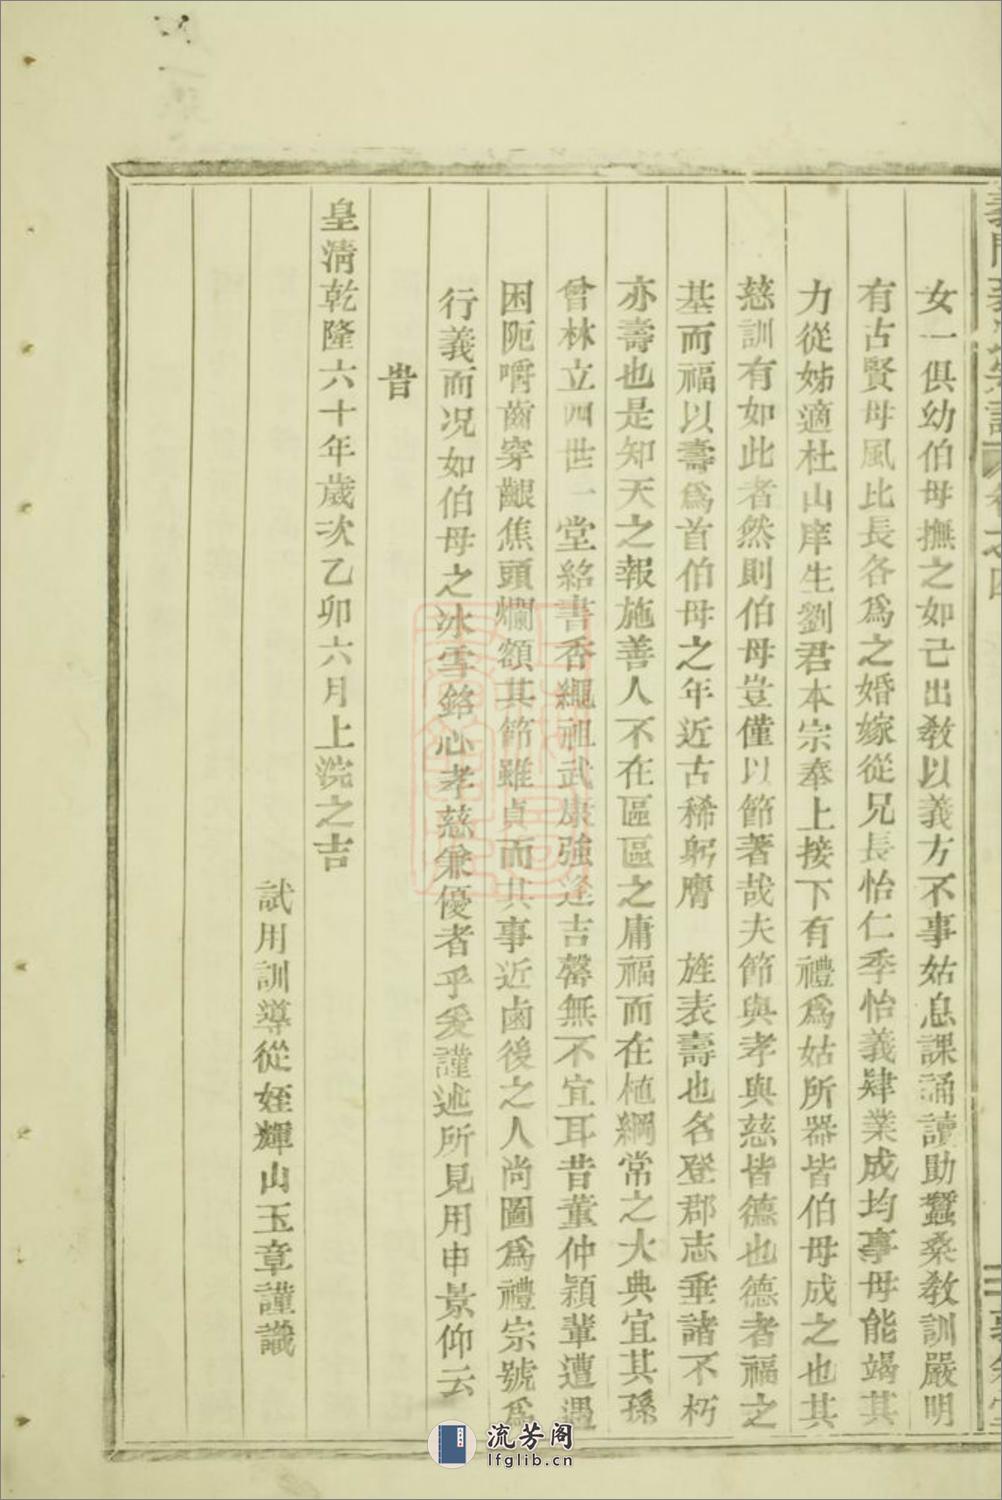 女一俱幼伯母撫之如己出敎以義方不事姑息課誦讀助蠶桑敎訓嚴明
有古賢母風比長各爲之婚嫁從兄長怡仁季怡義肄業成均事母能竭其
力從姊適杜山庠生劉君本宗奉上接下有禮爲姑所器皆伯母成之也其
慈訓有如此者然則伯母豈僅以節著哉夫節與孝與慈皆德也德者福之
基而福以壽爲首伯母之年近古稀躬膺 旌表壽也名登郡志垂諸不朽
亦壽也是知天之報施善人不在區區之庸福而在植綱常之大典宜其孫
曾林立四世一堂紹書香繩祖武康強逢吉罄無不宜耳昔董仲穎輩遭遇
困阨嚼齒穿齦焦頭爛額其節雖貞而其事近鹵後之人尚圖爲禮宗號爲
行義而况如伯母之冰雪銘心孝慈兼優者乎爰謹述所見用申景仰云
旹
皇淸乾隆六十年歲次乙卯六月上浣之吉
試用訓導從姪輝山玉章謹識
流芳阁
lfglib.cn